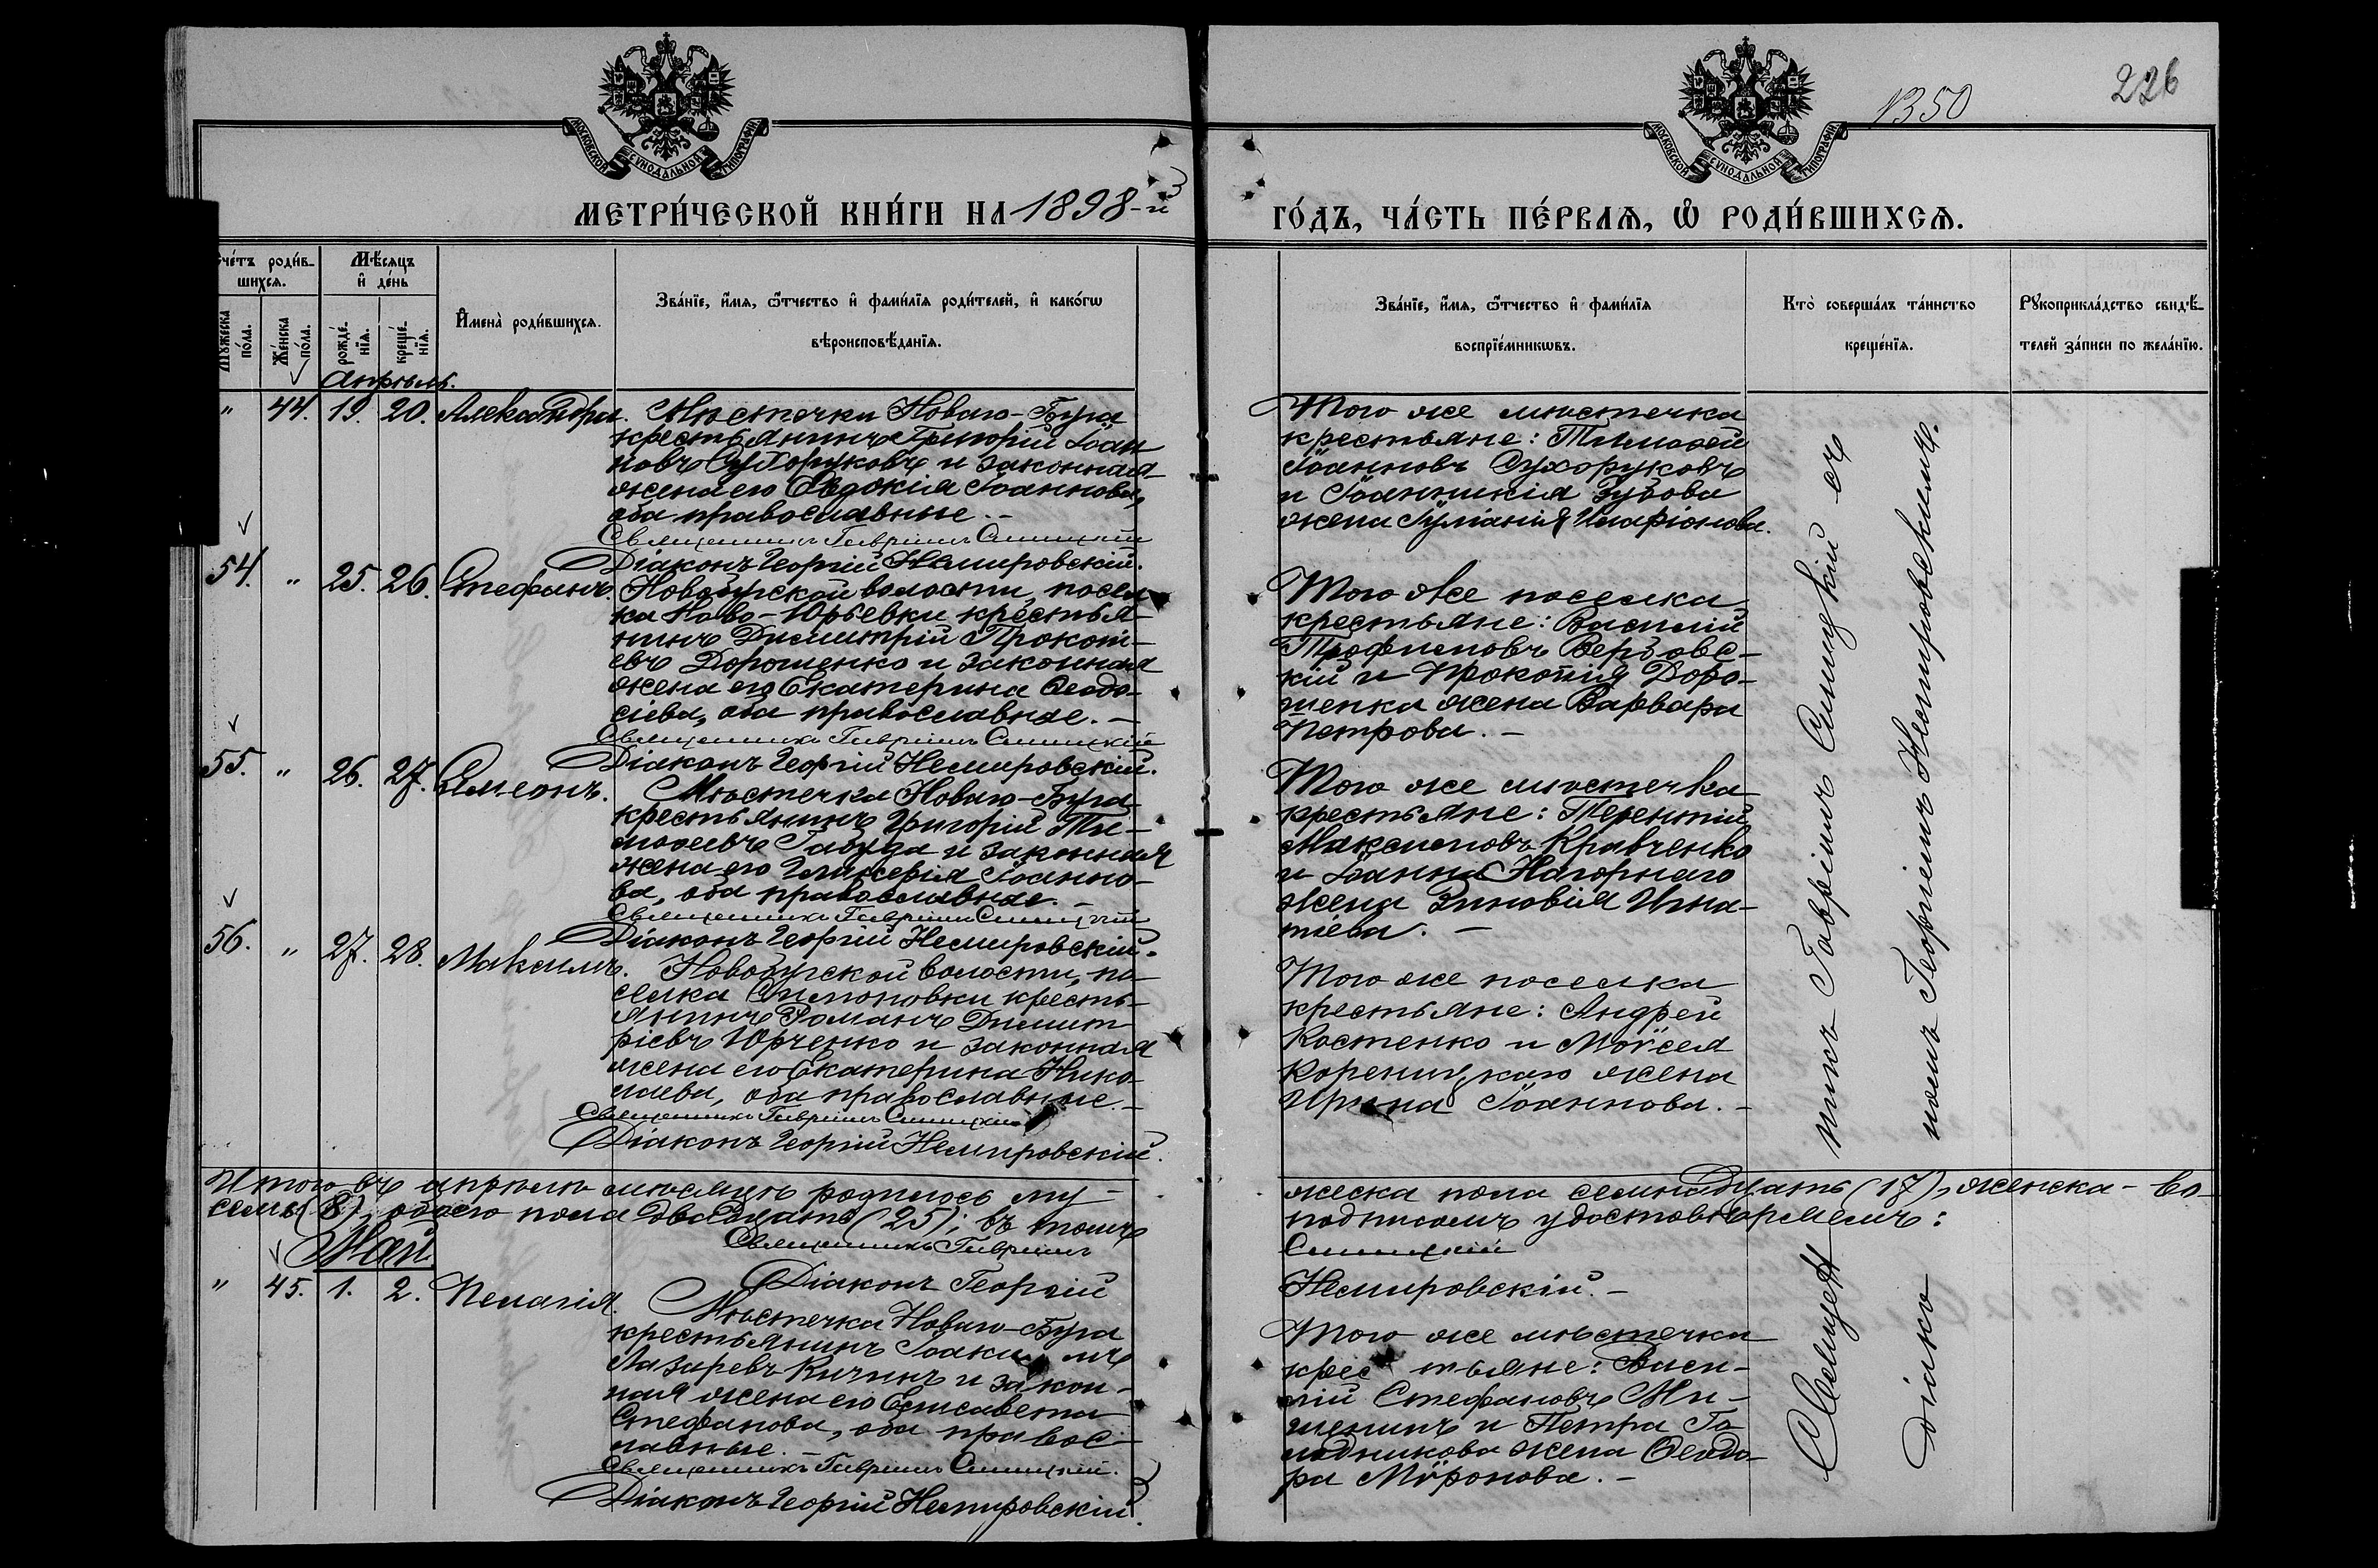 1350
226
МОСКОВСКОЙ СѴНОДАЛЬНОЙ ТИПОГРАФІИ
МОСКОВСКОЙ СѴНОДАЛЬНОЙ ТИПОГРАФІИ
МЕТРИ́ЧЕСКОЙ КНИ́ГИ НА 1898-й
ГО́ДЪ, ЧА́СТЬ ПЕ́РВАѦ, Ѽ РОДИ́ВШИХСѦ.
Счéтъ роди́в-
шихсѧ.
Мꙋжеска по́ла.
Же́нска по́ла.
Мѣ́сѧцъ
и҆ де́нь
рожде́-
нїѧ.
креще́-
нїѧ.
И҆мена̀ роди́вшихсѧ.
Зва́нїе, и҆́мѧ, ѻ҆́тчество и҆ фами́лїѧ роди́телей, и҆ како́гѡ
вѣроисповѣ́данїѧ.
Зва́нїе, и҆́мѧ, ѻ҆́тчество и҆ фами́лїѧ
воспрїе́мникѡвъ.
Кто̀ соверша́лъ та́инство
креще́нїѧ.
Рꙋкоприкла́дство свидѣ́-
телей за́писи по жела́нїю.
Апрѣль.
" 44. 19. 20. Александра.
Мѣстечка Новаго-Буга
крестьянинъ Григорій Іоан
новъ Сухоруковъ и законная
жена его Евдокія Іоаннова,
оба православные. -
Священникъ Гавріилъ Синицкій
Діаконъ Георгій Немировскій.
Того же мѣстечка
крестьяне: Тимоѳей
Іоанновъ Сухоруковъ
и Іоанникія Зубова
жена Іуліанія Иларіонова.
54. " 25. 26. Стефанъ.
Новобугской волости, посел
ка Ново-Юрьевки крестья-
нинъ Димитрій Прокопі-
евъ Дорошенко и законная
жена его Екатерина Ѳеодо-
сіева, оба православные. -
Священникъ Гавріилъ Синицкій
Діаконъ Георгій Немировскій.
Того же поселка
крестьяне: Василій
Трофимовъ Вербовс-
кій и Прокопія Доро-
шенка жена Варвара
Петрова. -
55. " 26. 27. Симеонъ.
Мѣстечка Новаго-Буга
крестьянинъ Григорій Ти-
моѳеевъ Габуда и законная
жена его Гликерія Іоанно-
ва, оба православные. -
Священникъ Гавріилъ Синицкій
Діаконъ Георгій Немировскій.
Того же мѣстечка
крестьяне: Терентій
Максимовъ Кравченко
и Іоанна Нагорнаго
жена Зиновія Игна-
тіева. -
56. " 27. 28. Максимъ.
Новобугской волости, по-
селка Симоновки кресть-
янинъ Романъ Димит
ріевъ Юрченко и законная
жена его Екатерина Нико-
лаева, оба православные. -
Священникъ Гавріилъ Синицкій
Діаконъ Георгій Немировскій.
Того же поселка
крестьяне: Андрей
Костенко и Моѵсея
Кореницкаго жена
Ирина Іоаннова. -
Итого въ апрѣлѣ мѣсяцѣ родилось му-
жеска пола семнадцать (17), женска - во-
семь (8), обоего пола двадцать (25), въ томъ
подписомъ удостовѣряемъ:
Священникъ Гавріилъ
Синицкій
Діаконъ Георгій
Немировскій. -
Май
" 45. 1. 2. Пелагія.
Мѣстечка Новаго-Буга
крестьянинъ Іоакимъ
Лазаревъ Кичинъ и закон-
ная жена его Елисавета
Стефанова, оба правос-
лавные. -
Священникъ Гавріилъ Синицкій.
Діаконъ Георгій Немировскій.
Того же мѣстечка
крестьяне: Васи-
лій Стефановъ Ми-
шенинъ и Петра Го
лодникова жена Ѳеодо-
ра Мѵронова. -
Священникъ Гавріилъ Синицкій съ
діакономъ Георгіемъ Немировскимъ.